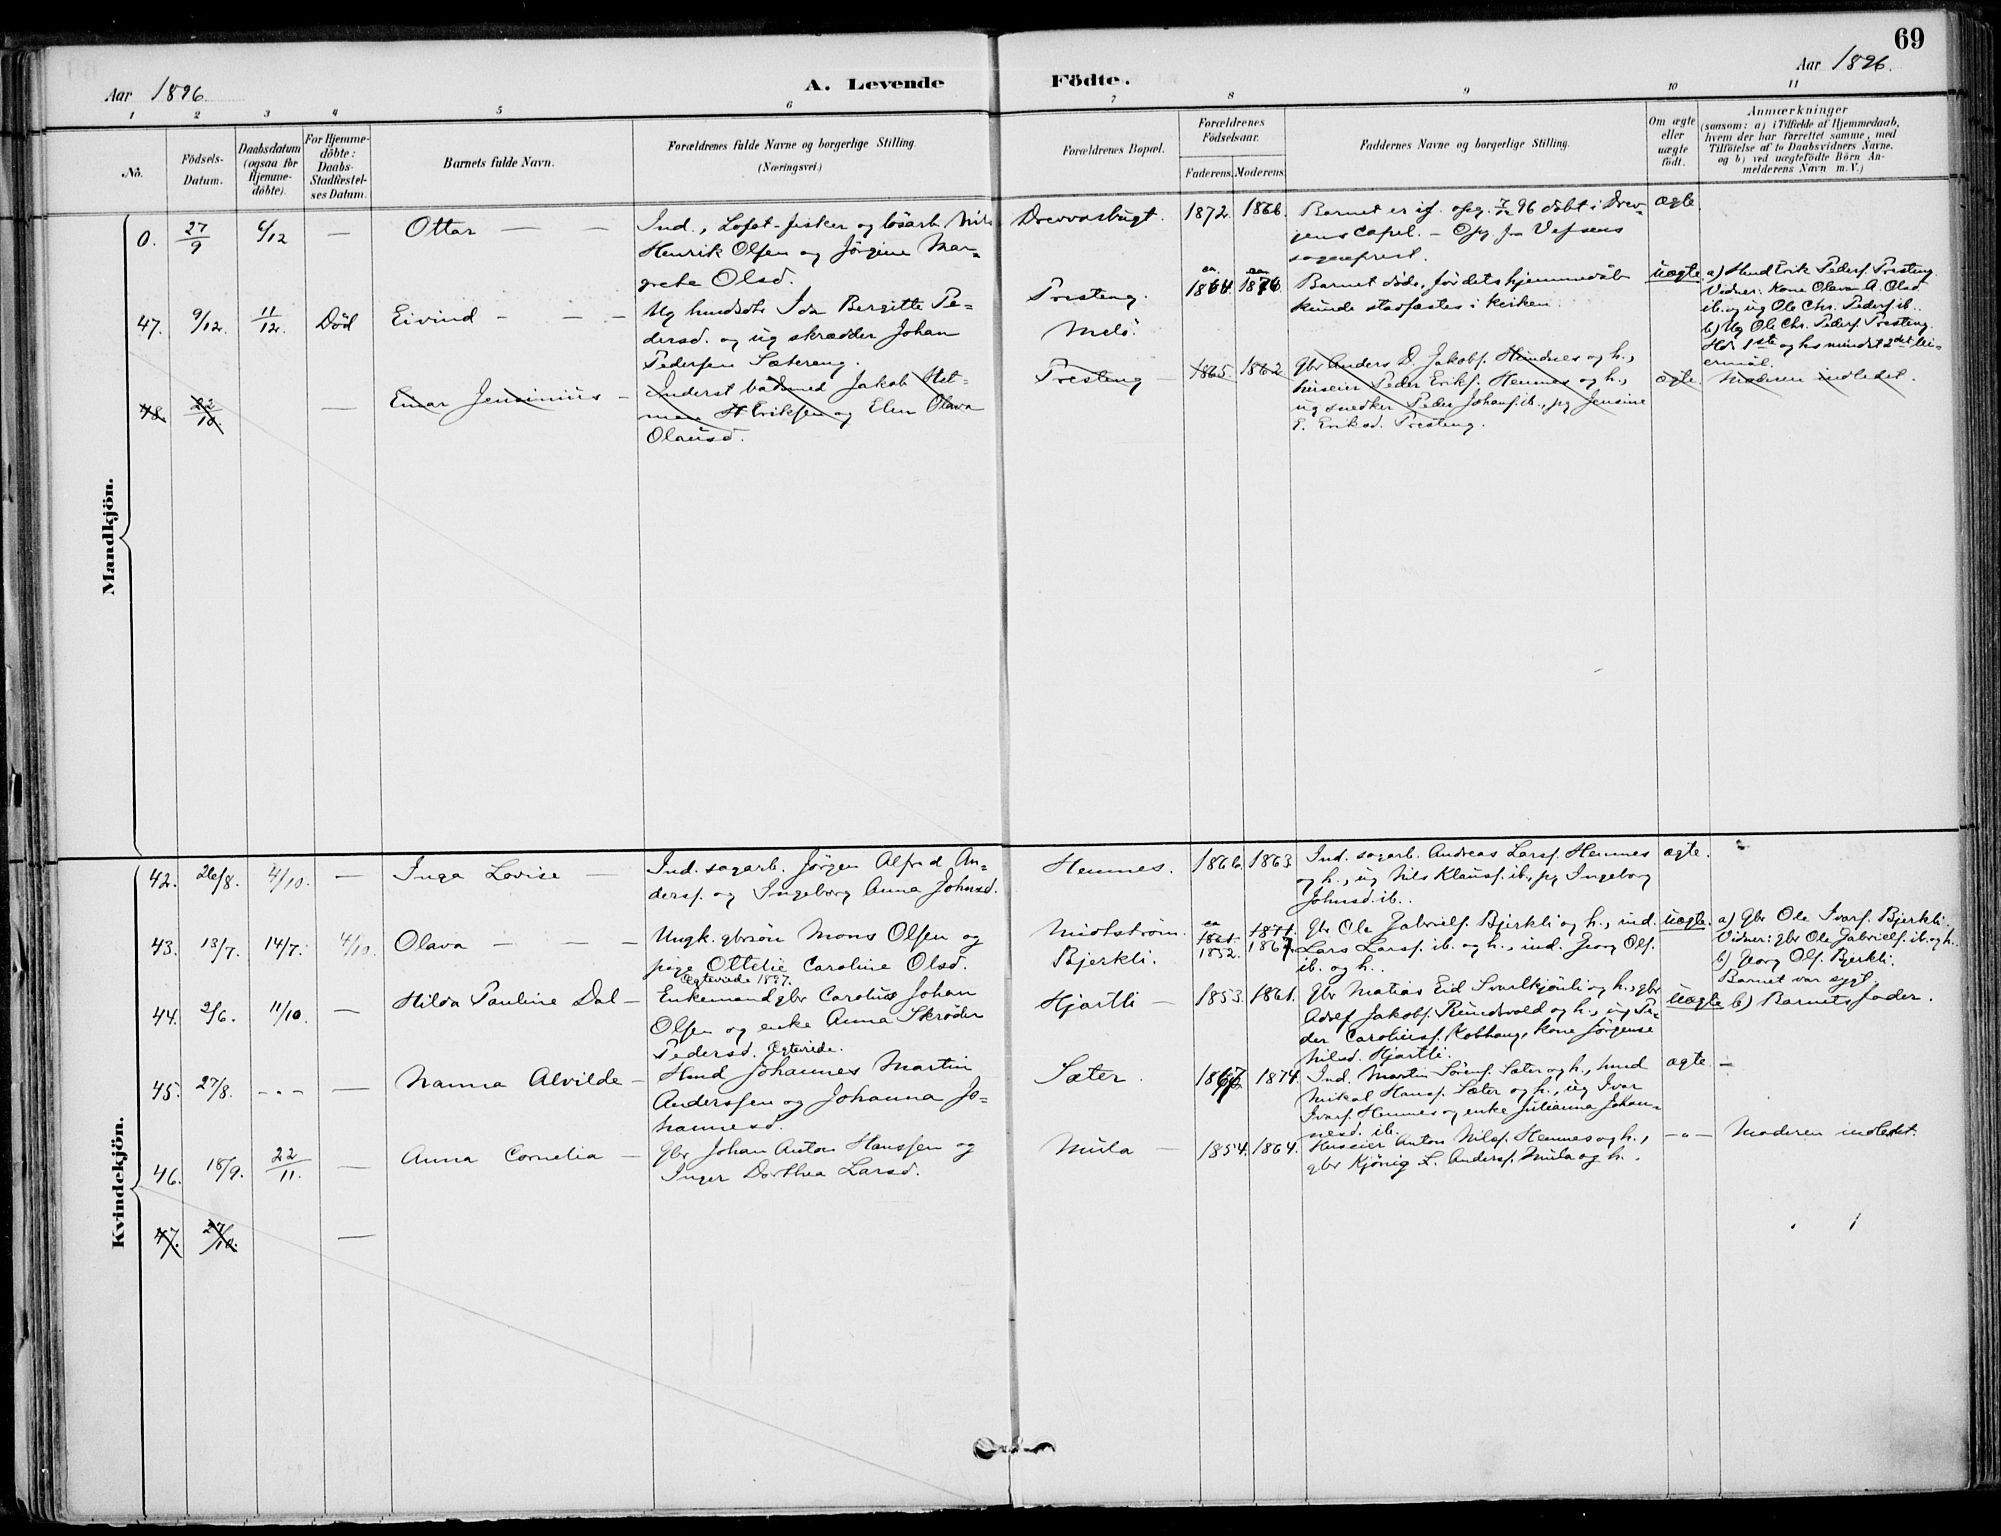 69
Aar 1896.
A. Levende Födte.
Aar 1896.
1 2 3 4 5 6 7 8 9 10 11
No.
Födsels-
Datum.
Daabsdatum
(ogsaa för
Hjemme-
döbte).
For Hjemme-
döbte:
Daabs-
Stadfæstel-
ses Datum.
Barnets fulde Navn.
Forældrenes fulde Navne og borgerlige Stilling.
(Næringsvei.)
Forældrenes Bopæl.
Forældrenes
Födselsaar.
Faderens. Moderens.
Faddernes Navne og borgerlige Stilling.
Om ægte
eller
uægte
födt.
Anmærkninger
(saasom: a) i Tilfælde af Hjemmedaab,
hvem der har forrettet samme, med
Tilföielse af to Daabsvidners Navne,
og b) ved uægtefödte Börn An-
melderens Navn m. V.)
Mandkjön.
0. 27/9 6/12 — Ottar — —
Ind., Lofot-fisker og løsarb. Nils
Henrik Olsen og Jørgine Mar-
grete Olsd.
Drevvasbugt. 1872. 1866.
Barnet er if. opg. 96 døbt i Drev-
jens Capel. — Opg. fra Vefsens
sogneprest.
ægte.
47. 9/12. 11/12. Død Eivind — — —
Ug hmdsdt. Ida Bergitte Pe-
dersd. og ug skrædder Johan
Pedersen Sætereng.
Tresteng.
Melö.
ca. 1864. 1876.
Barnet døde, før dets hjemmedåb
kunde stadfæstes i kirken.
uægte.
a) Hmd Erik Peders. Tresteng.
Vidner: Kone Olava A. Olsd
ib. og ug Ole Chr. Peders. ib.
b) Ug Ole Chr. Peders. Tresteng.
Hds 1ste og hs mindst 2det lei-
ermål.
48. 22/10. — Einar Jensinius —
Inderst bådmd Jakob Het-
man Eriksen og Elen Olava
Olausd.
Tresteng — 1865. 1862
Gbr Anders D. Jakobs. Hemnes og h.,
huseier Peder Eriks. Hemnes og h.,
ug snedker Peder Johans. ib., pg Jensine
E. Eriksd. Tresteng.
ægte. Moderen indledet.
Kvindekjön.
42. 26/8. 4/10. — Inga Lovise —
Ind. sagarb. Jørgen Alfred An-
ders. og Ingeborg Anna Johnsd.
Hemnes. 1866. 1863
Ind. sagarb. Andreas Lars. Hemnes
og h., ug Nils Klaus. ib., pg Ingeborg
Johnsd. ib..
ægte.
43. 13/7. 14/7. 4/10. Olava — — —
Ungk. gbrsøn Mons Olsen og
pige Ottelie Caroline Olsd.
Midtstrøm.
Bjerkli.
ca 1861. 1852. 1871. 1867.
Gbr Ole Gabriels. Bjerkli og h., ind.
Lars Lars. ib. og h., ind. Georg Ols.
ib. og h..
uægte.
a) Gbr Ole Ivars. Bjerkli.
Vidner: gbr Ole Gabriels. ib. og h..
b) Georg Ols. Bjerkli.
Barnet var sygt.
44. 2/6. 11/10. — Hilda Pauline Dal —
Ægteviede 1897.
Enkemand gbr Carolius Johan
Olsen og enke Anna Skrøder
Pedersd. Ægteviede.
Hjartli — 1853. 1861.
Gbr Matias Eid Svartkjönli og h., gbr
Adolf Jakobs. Rundvold og h., ug Pe-
der Carolius. Kobhaug, kone Jørgense
Nilsd. Hjartli.
Uægte b) Barnets fader.
45. 27/8. - „ - — Nanna Alvilde —
Hmd Johannes Martin
Anderssen og Johanna Jo-
hannesd.
Sæter. 1867. 1874.
Ind. Martin Sörens. Sæter og h., hmd
Mikal Hans. Sæter og h., ug Ivar
Ivars. Hemnes og enke Julianna Johan-
nesd. ib.
ægte. —
46. 18/9. 22/11. — Anna Cornelia —
Gbr Johan Anton Hanssen og
Inger Dorthea Larsd.
Mula — 1854. 1864.
Huseier Anton Nils. Hemnes og h.,
gbr Kjönig L. Anders. Mula og h..
— „ — Moderen indledet.
47. 27/10. —